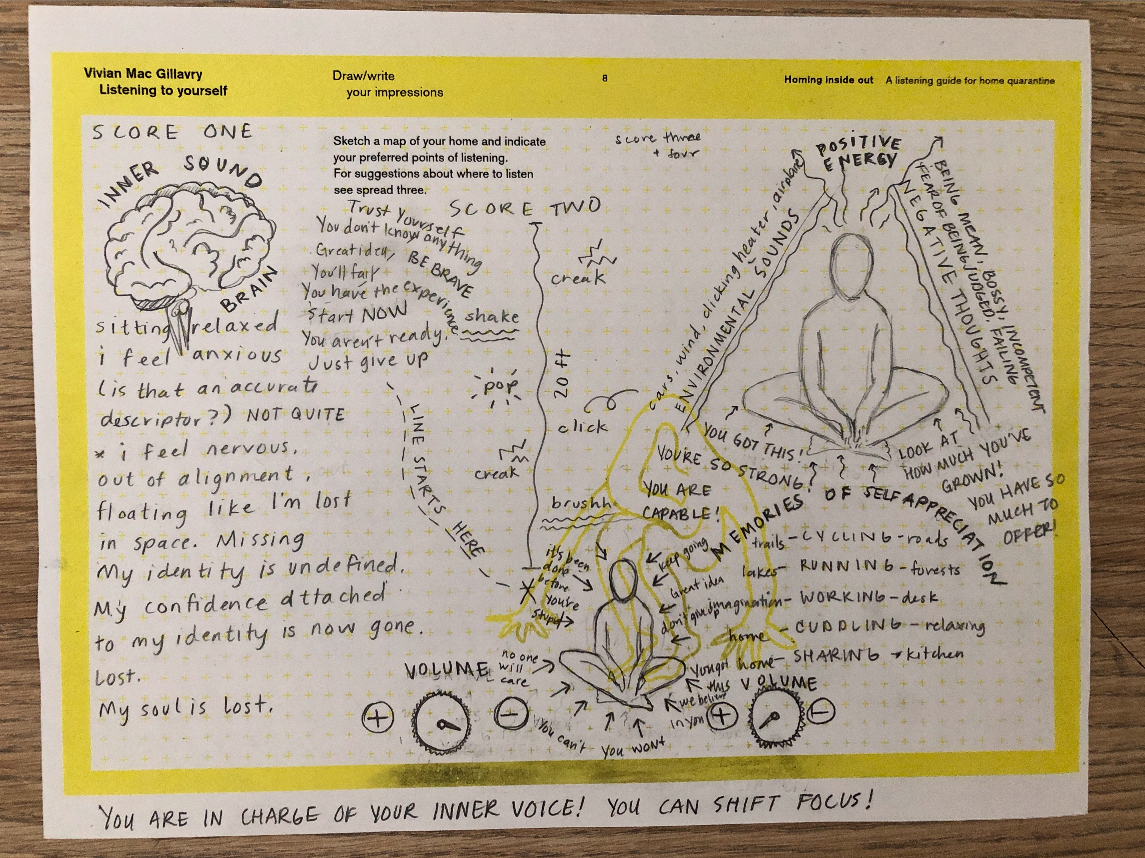 Vivian Mac Gillavry
Listening to yourself
Draw/write
your impressions
8
Homing inside out A listening guide for home quarantine
SCORE ONE
INNER SOUND
BRAIN
sitting relaxed
i feel anxious
(is that an accurate
descriptor?) NOT QUITE
* i feel nervous,
out of alignment,
floating like I'm lost
in space. Missing
My identity is undefined.
My confidence attached
to my identity is now gone.
Lost.
My soul is lost.
Sketch a map of your home and indicate
your preferred points of listening.
For suggestions about where to listen
see spread three.
Trust yourself
You don't know anything
Great idea,
BE BRAVE
You'll fail
You have the experience
Start NOW
You aren't ready.
Just give up
LINE STARTS HERE
SCORE TWO
creak
shake
20 ft
pop
click
creak
brushh
score three
+ four
POSITIVE
ENERGY
cars, wind, clicking heater, airplane
ENVIRONMENTAL SOUNDS
BEING MEAN, BOSSY, INCOMPETENT
FEAR OF BEING JUDGED, FAILING
NEGATIVE THOUGHTS
YOU GOT THIS!
YOU'RE SO STRONG!
YOU ARE
CAPABLE!
LOOK AT
HOW MUCH YOU'VE
GROWN!
YOU HAVE SO
MUCH TO
OFFER!
MEMORIES OF SELF APPRECIATION
trails - CYCLING - roads
lakes - RUNNING - forests
imagination - WORKING - desk
home - CUDDLING - relaxing
home - SHARING → kitchen
it's been
done
before
You're
stupid
no one
will
care
You can't
You won't
keep going
Great idea
don't give up
You got
this
we believe
in you
VOLUME
+
−
VOLUME
+
−
YOU ARE IN CHARGE OF YOUR INNER VOICE! YOU CAN SHIFT FOCUS!